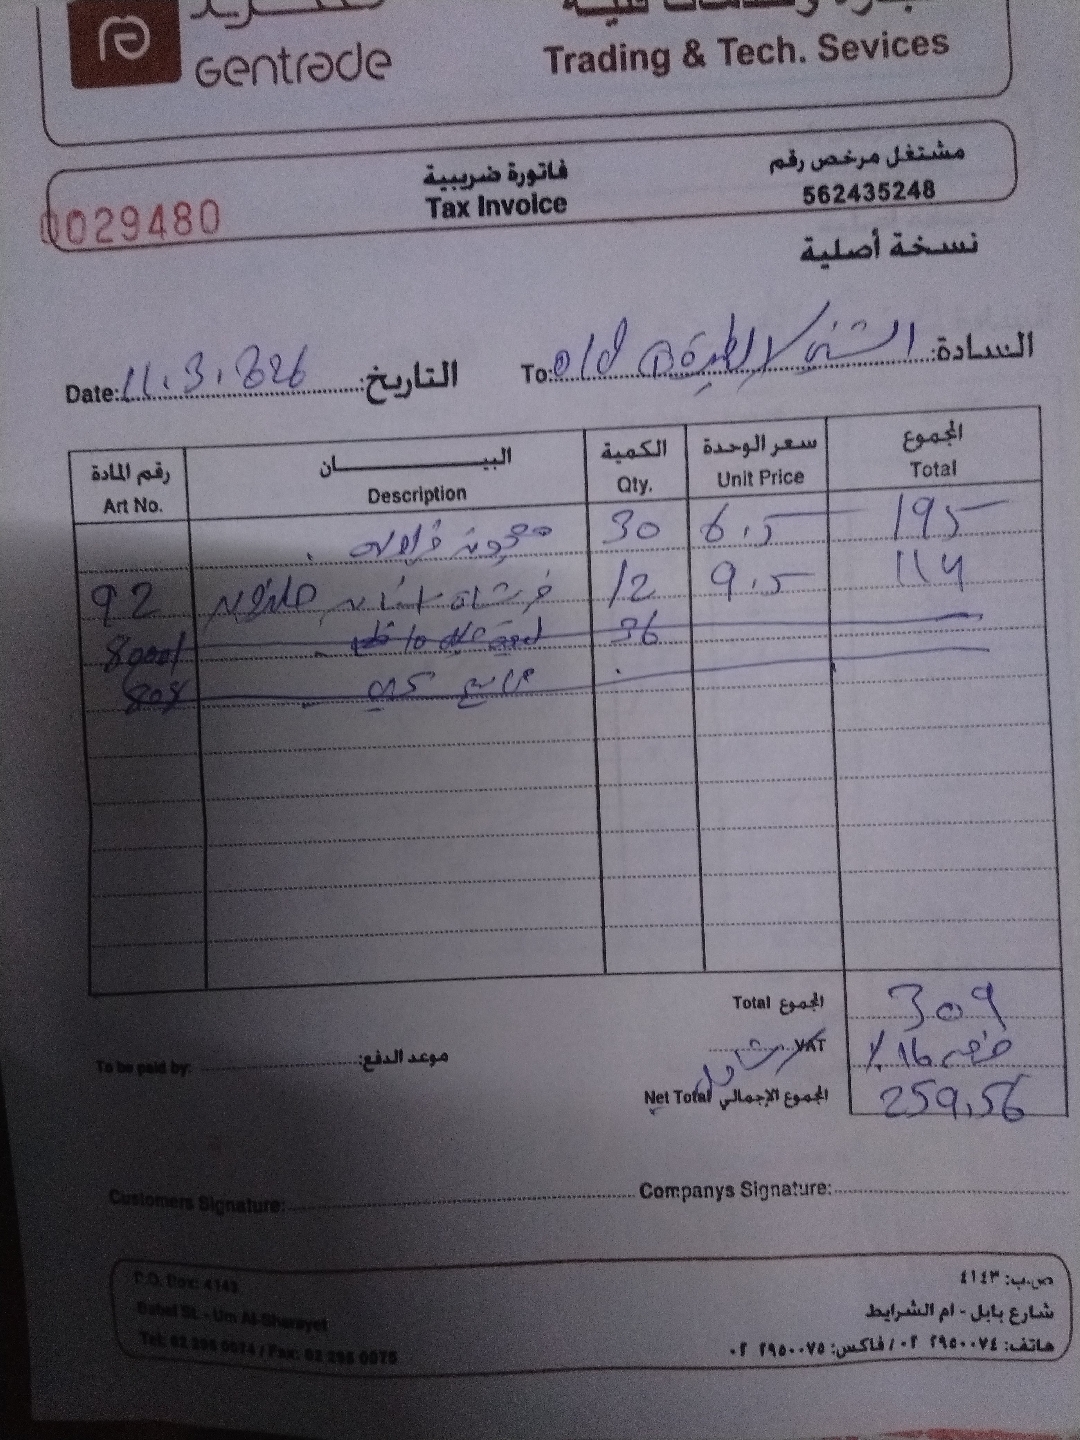 Gentrade
Trading & Tech. Sevices
مشتغل مرخص رقم
562435248
فاتورة ضريبية
Tax Invoice
0029480
نسخة أصلية
السادة: To:
التاريخ: Date: 11.3.2026
رقم المادة البيان الكمية سعر الوحدة المجموع
Art No. Description Qty. Unit Price Total
30 6.5 195
92 12 9.5 114
80001 36
808
Total المجموع 309
VAT خصم 16%
Net Total المجموع الإجمالي 259,56
To be paid by: موعد الدفع:
Customers Signature: Companys Signature:
P.O. Box: 4143
Babel St. - Um Al-Sharayet
Tel: 02 295 0074 / Fax: 02 295 0075
ص.ب: ٤١٤٣
شارع بابل - ام الشرايط
هاتف: ٠٢ ٢٩٥٠٠٧٤ / فاكس: ٠٢ ٢٩٥٠٠٧٥